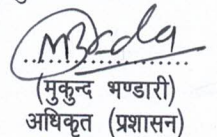 (मुकुन्द भण्डारी)
अधिकृत (प्रशासन)